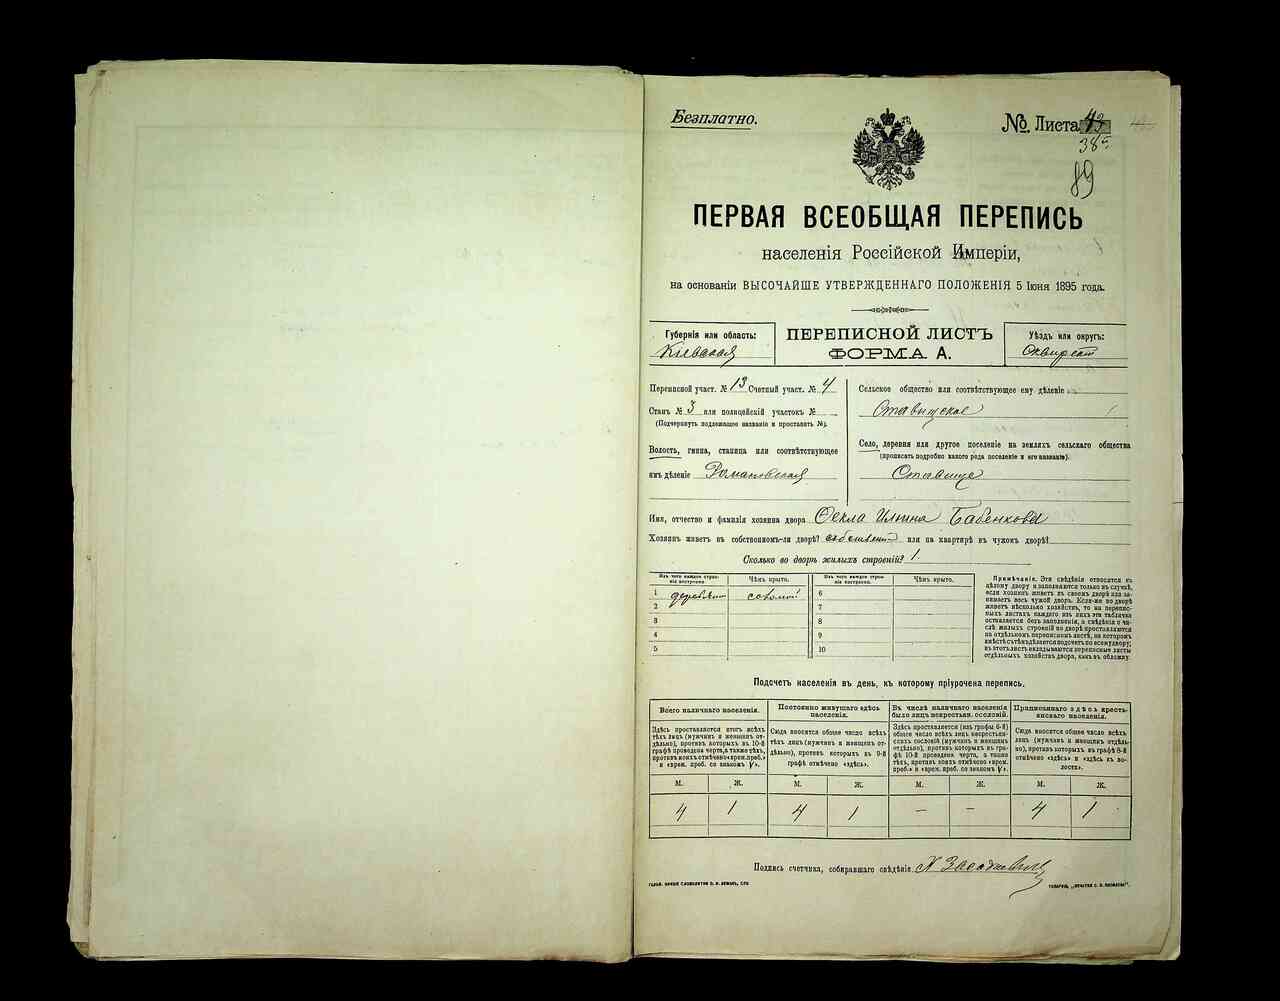 Безплатно.
№ Листа 43
38
89
ПЕРВАЯ ВСЕОБЩАЯ ПЕРЕПИСЬ
населенія Россійской Имперіи,
на основаніи ВЫСОЧАЙШЕ УТВЕРЖДЕННАГО ПОЛОЖЕНІЯ 5 Іюня 1895 года.
Губернія или область:
Кіевская
ПЕРЕПИСНОЙ ЛИСТЪ
ФОРМА А.
Уѣздъ или округъ:
Переписной участ. № 13 Счетный участ. № 4
Станъ № 3 или полицейскій участокъ №
(Подчеркнуть подлежащее названіе и проставить №).
Волость, гмина, станица или соотвѣтствующее
имъ дѣленіе Романовская
Сельское общество или соотвѣтствующее ему дѣленіе
Ставищское
Село, деревня или другое поселеніе на земляхъ сельскаго общества
(прописать подробно какого рода поселеніе и его названіе).
Ставище
Имя, отчество и фамилія хозяина двора Фекла Ильина Бабенкова
Хозяинъ живетъ въ собственномъ-ли дворѣ? или на квартирѣ въ чужомъ дворѣ?
Сколько во дворѣ жилыхъ строеній? 1.
Изъ чего каждое строеніе построено. Чѣмъ крыто. Изъ чего каждое строеніе построено. Чѣмъ крыто.
1 деревяни соломой 6
2 7
3 8
4 9
5 10
Примѣчаніе. Эти свѣдѣнія относятся къ
цѣлому двору и заполняются только въ случаѣ,
если хозяинъ живетъ въ своемъ дворѣ или занимаетъ
весь чужой дворъ. Если-же во дворѣ
живетъ нѣсколько хозяйствъ, то на переписныхъ
листахъ каждаго изъ нихъ эта табличка
оставляется безъ заполненія, а свѣдѣнія о числѣ
жилыхъ строеній во дворѣ проставляются
на отдѣльномъ переписномъ листѣ, на которомъ
вмѣстѣ съ тѣмъ дѣлается подсчетъ по всему двору;
въ этотъ листъ вкладываются переписные листы
отдѣльныхъ хозяйствъ двора, какъ въ обложку.
Подсчетъ населенія въ день, къ которому пріурочена перепись.
Всего наличнаго населенія.
Здѣсь проставляется итогъ всѣхъ тѣхъ лицъ (мужчинъ и женщинъ отдѣльно), противъ которыхъ въ 10-й графѣ проведена черта, а также тѣхъ, противъ коихъ отмѣчено «врем. преб.» и «врем. проб. со знакомъ V».
Постоянно живущаго здѣсь населенія.
Сюда вносится общее число всѣхъ тѣхъ лицъ (мужчинъ и женщинъ отдѣльно), противъ которыхъ въ 9-й графѣ отмѣчено «здѣсь».
Въ числѣ наличнаго населенія было лицъ некрестьян. сословій.
Здѣсь проставляется (изъ графы 6-й) общее число всѣхъ лицъ некрестьянскихъ сословій (мужчинъ и женщинъ отдѣльно), противъ которыхъ въ графѣ 10-й проведена черта, а также тѣхъ, противъ коихъ отмѣчено «врем. преб.» и «врем. преб. со знакомъ V».
Приписаннаго здѣсь крестьянскаго населенія.
Сюда вносится общее число всѣхъ лицъ (мужчинъ и женщинъ отдѣльно), противъ которыхъ въ графѣ 8-й отмѣчено «здѣсь» и «здѣсь къ волости».
М. Ж. М. Ж. М. Ж. М. Ж.
4 1 4 1 – – 4 1
Подпись счетчика, собиравшаго свѣдѣнія